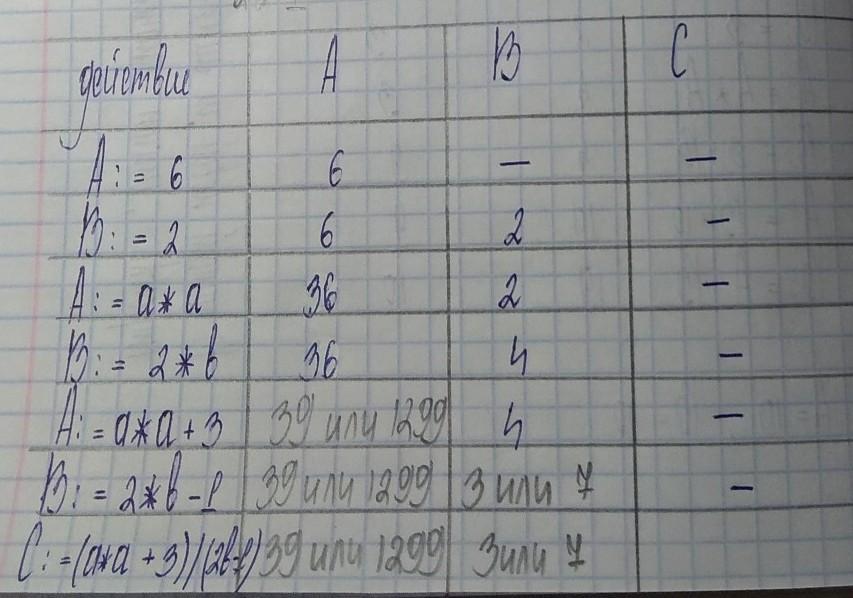 действие A B C
A := 6 6 — —
B := 2 6 2 —
A := a * a 36 2 —
B := 2 * b 36 4 —
A := a * a + 3 39 или 1299 4 —
B := 2 * b - 1 39 или 1299 3 или 7 —
C := (a*a + 3)/(2b-1) 39 или 1299 3 или 7